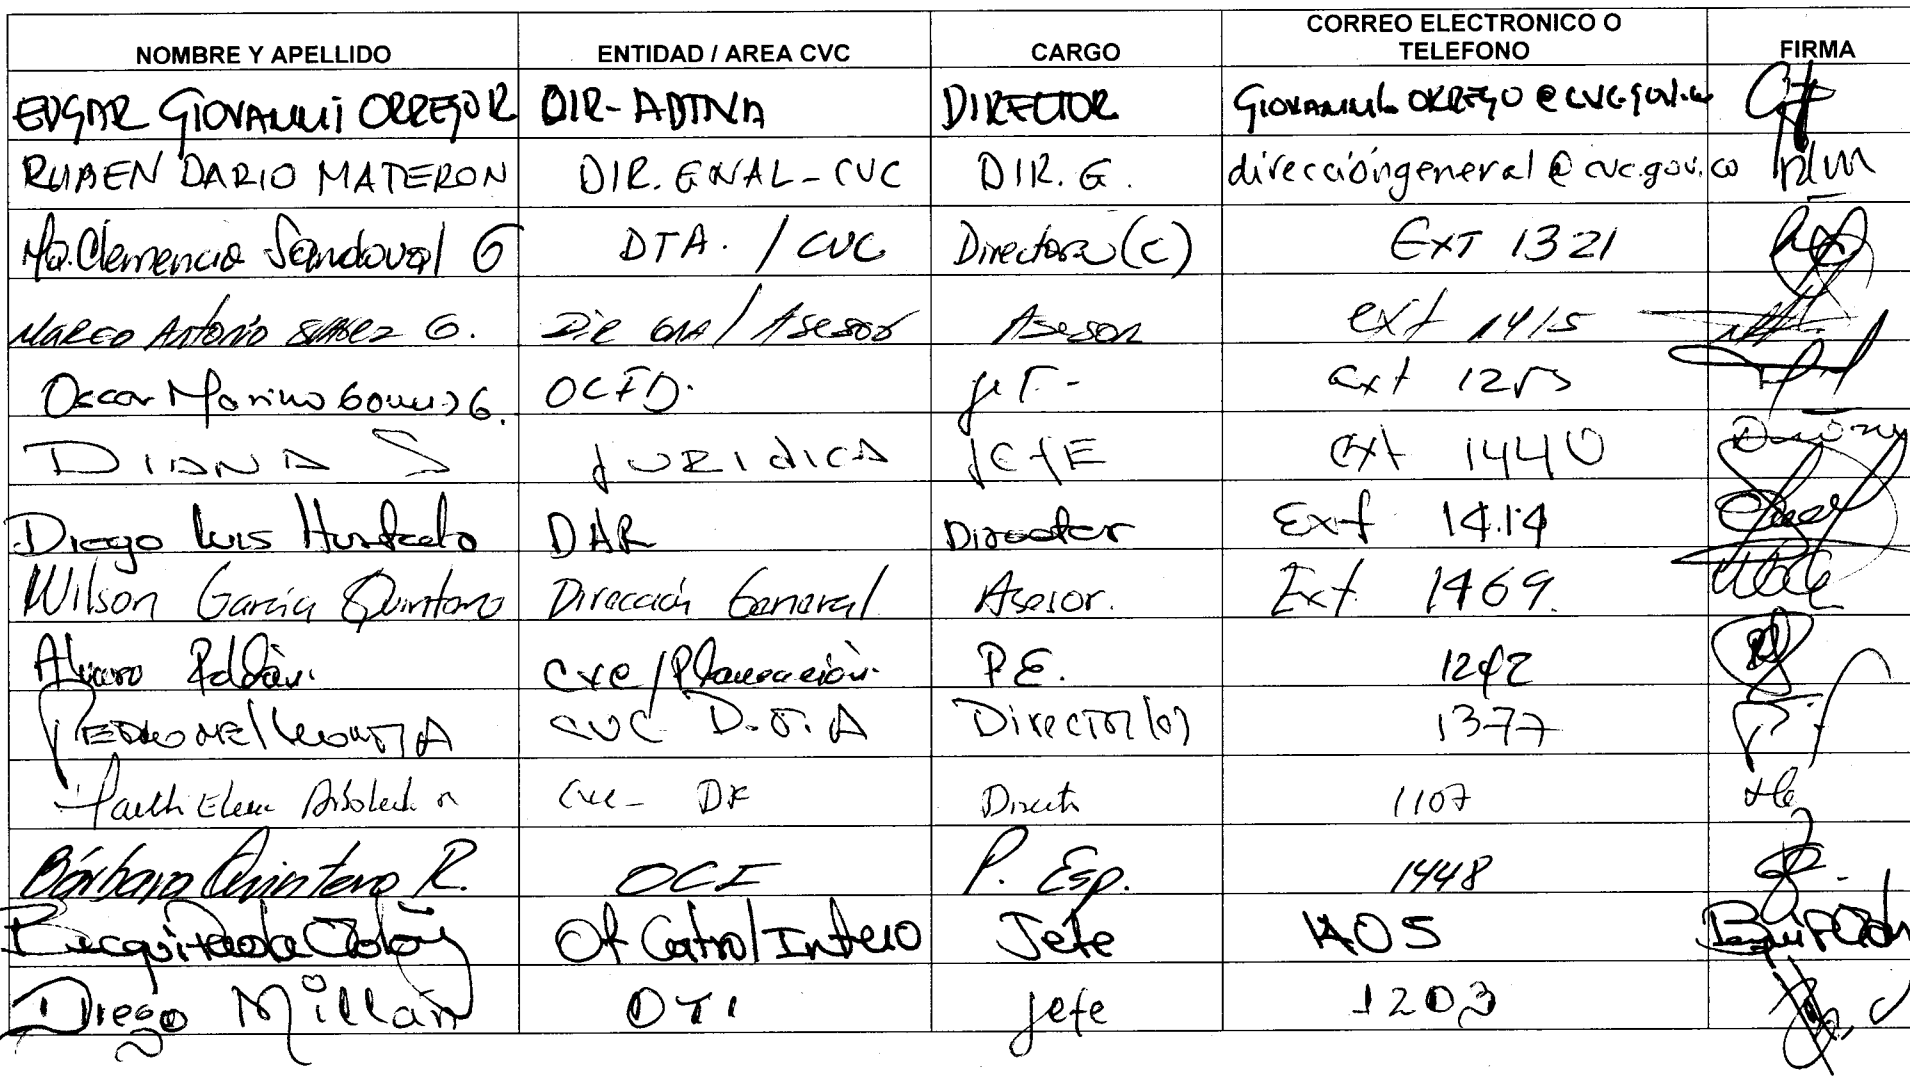 NOMBRE Y APELLIDO ENTIDAD / AREA CVC CARGO CORREO ELECTRONICO O TELEFONO FIRMA
EDGAR GIOVANNI ORREGO R DIR-ADTIVA DIRECTOR
RUBEN DARIO MATERON DIR. GNAL-CVC DIR. G. direccióngeneral@cvc.gov.co
Ma. Clemencia Sandoval G DTA. / CVC Directora (c) EXT 1321
MARCO Antonio SUAREZ G. DIR GNAL / Asesor Asesor ext 1415
Oscar Marino Gomez G. OCID. ext
DIANA S JURIDICA JEFE ext 1440
Diego Luis Hurtado DAR Director Ext 1414
Wilson García Quintana Dirección General Asesor. Ext 1469.
Alvaro Roldán. CVC/Planeación. P.E. 1242
PEDRO NEL MONTOYA CVC Director 1377
Elena Arboleda CVC- DF 1107
Bárbara Quintero R. OCI P. Esp. 1448
Of Control Interno Jefe 1405
Diego Millán OTI Jefe 1203